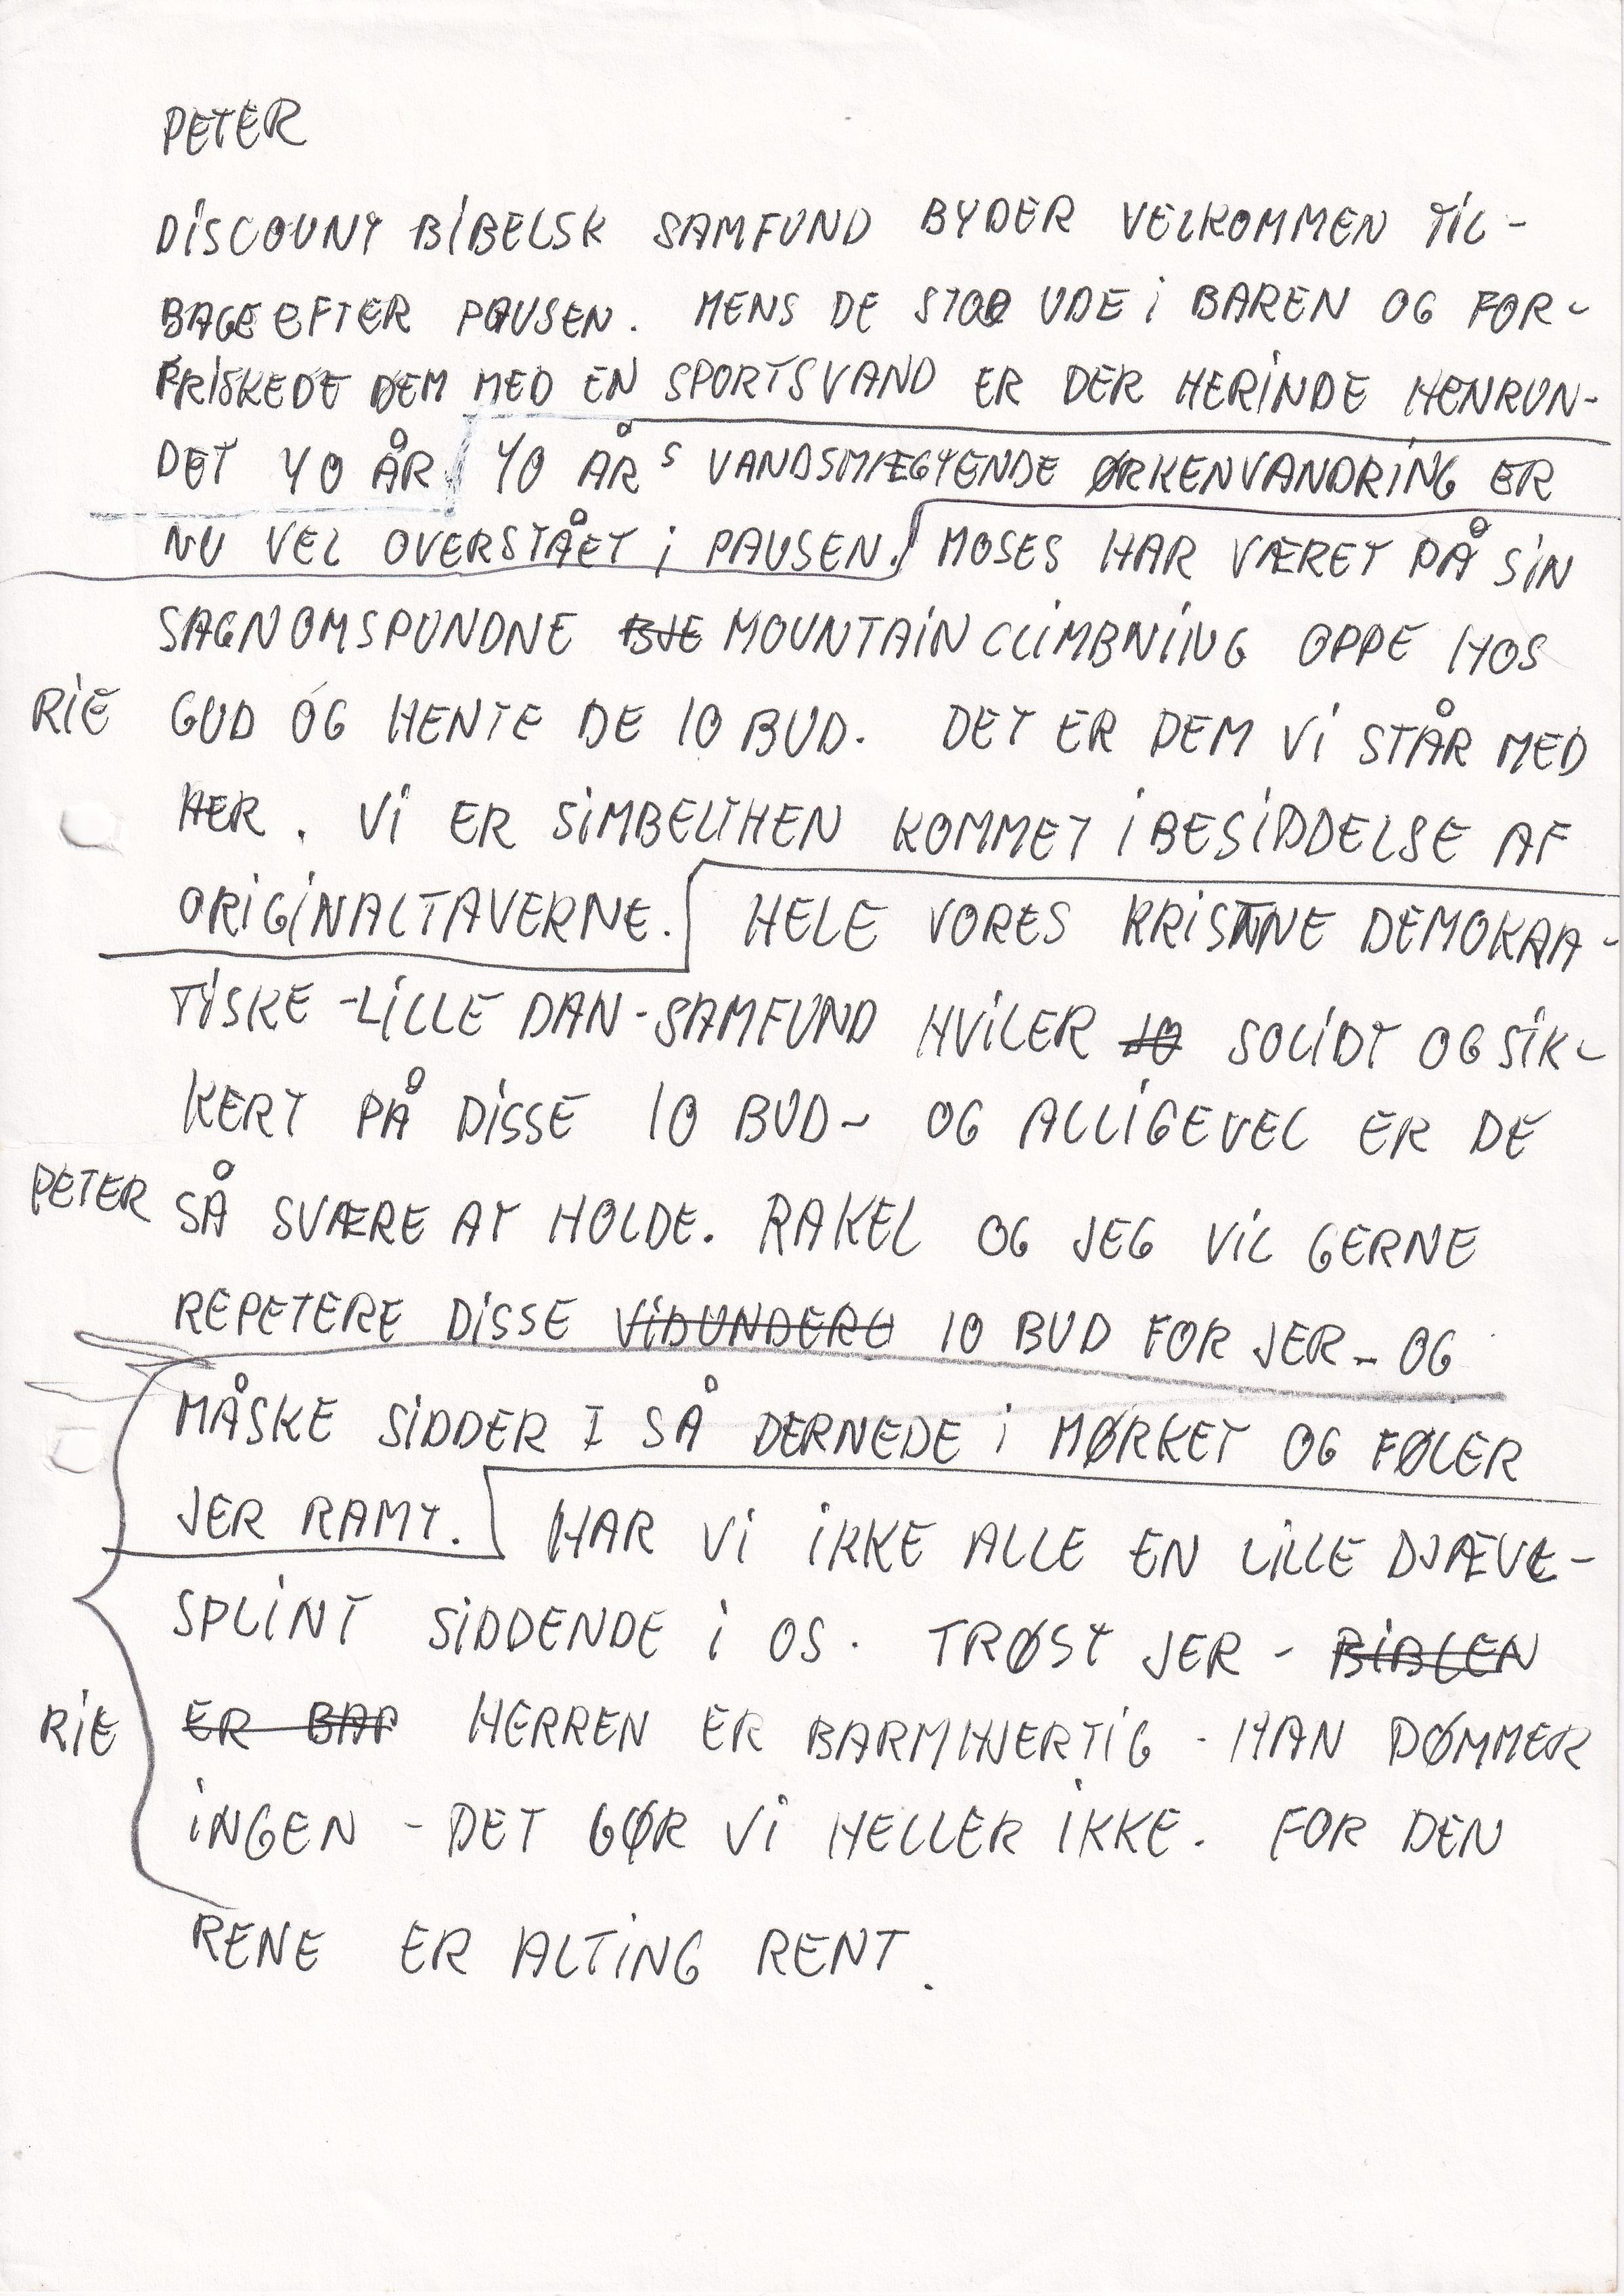 PETER
DISCOUNT BIBELSK SAMFUND BYDER VELKOMMEN TIL-
BAGE EFTER PAUSEN. MENS DE STOD UDE I BAREN OG FOR-
FRISKEDE DEM MED EN SPORTSVAND ER DER HERINDE HENRUN-
DET 40 ÅR 40 ÅRS VANDSMÆGTENDE ØRKENVANDRING ER
NU VEL OVERSTÅET I PAUSEN. MOSES HAR VÆRET PÅ SIN
SAGNOMSPUNDNE BJE MOUNTAINCLIMBNING OPPE HOS
RIE GUD OG HENTE DE 10 BUD. DET ER DEM VI STÅR MED
HER. VI ER SIMBELTHEN KOMMET I BESIDDELSE AF
ORIGINALTAVERNE. HELE VORES KRISTNE DEMOKRA-
TISKE-LILLE DAN-SAMFUND HVILER JO SOLIDT OG SIK-
KERT PÅ DISSE 10 BUD- OG ALLIGEVEL ER DE
PETER SÅ SVÆRE AT HOLDE. RAKEL OG JEG VIL GERNE
REPETERE DISSE VIDUNDERL 10 BUD FOR JER- OG
MÅSKE SIDDER I SÅ DERNEDE I MØRKET OG FØLER
JER RAMT. HAR VI IKKE ALLE EN LILLE DJÆVLE-
SPLINT SIDDENDE I OS. TRØST JER - BIBLEN
RIE ER BAR HERREN ER BARMHJERTIG - HAN DØMMER
INGEN - DET GØR VI HELLER IKKE. FOR DEN
RENE ER ALTING RENT.